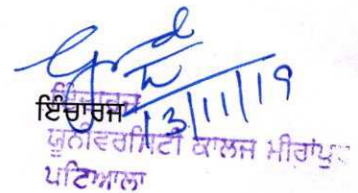 13/11/19
ਇੰਚਾਰਜ
ਇੰਚਾਰਜ
ਯੂਨੀਵਰਸਿਟੀ ਕਾਲਜ ਮੀਰਾਂਪੁਰ
ਪਟਿਆਲਾ